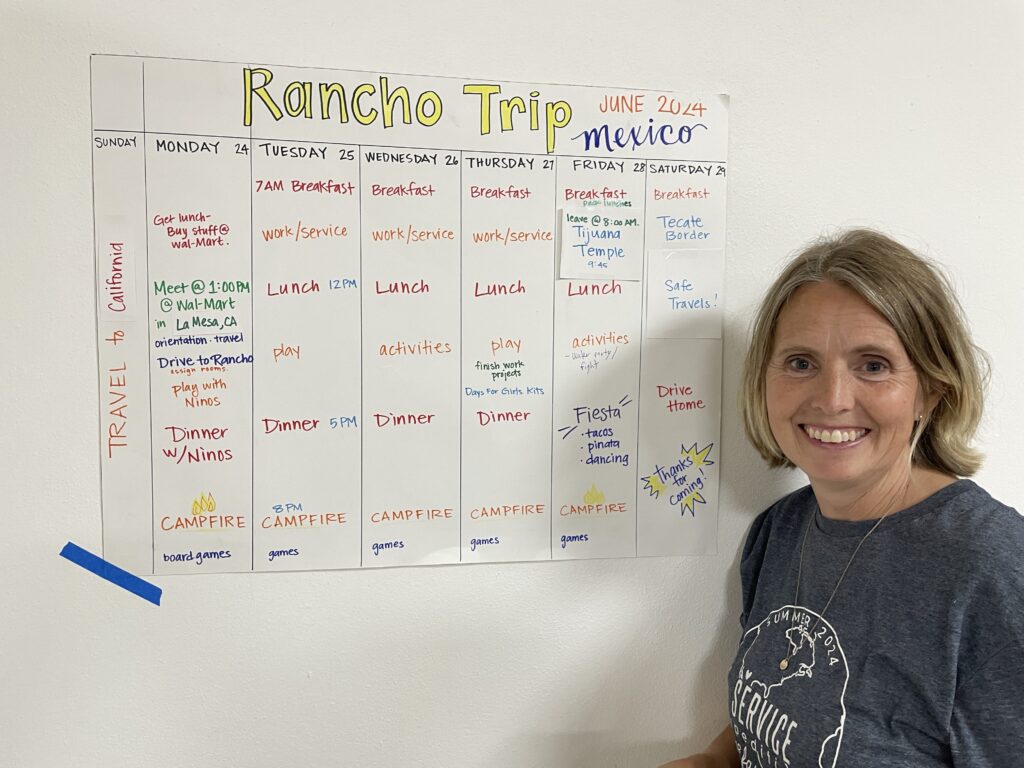 Rancho Trip
JUNE 2024
mexico
SUNDAY
TRAVEL to California
MONDAY 24
Get lunch-
Buy stuff@
Wal-Mart.
Meet @ 1:00PM
@ Wal-Mart
in La Mesa, CA
orientation · travel
Drive to Rancho
assign rooms.
play with
Ninos
Dinner
w/Ninos
CAMPFIRE
board games
TUESDAY 25
7AM Breakfast
work/service
Lunch 12PM
play
Dinner 5PM
8PM
CAMPFIRE
games
WEDNESDAY 26
Breakfast
work/service
Lunch
activities
Dinner
CAMPFIRE
games
THURSDAY 27
Breakfast
work/service
Lunch
play
finish work
projects
Days For Girls Kits
Dinner
CAMPFIRE
games
FRIDAY 28
Breakfast
pack lunches
leave @ 8:00AM.
Tijuana
Temple
9:45
Lunch
activities
- water party/
fight
Fiesta
· tacos
· pinata
· dancing
CAMPFIRE
games
SATURDAY 29
Breakfast
Tecate
Border
Safe
Travels!
Drive
Home
Thanks
for
Coming!
SUMMER 2024
SERVICE